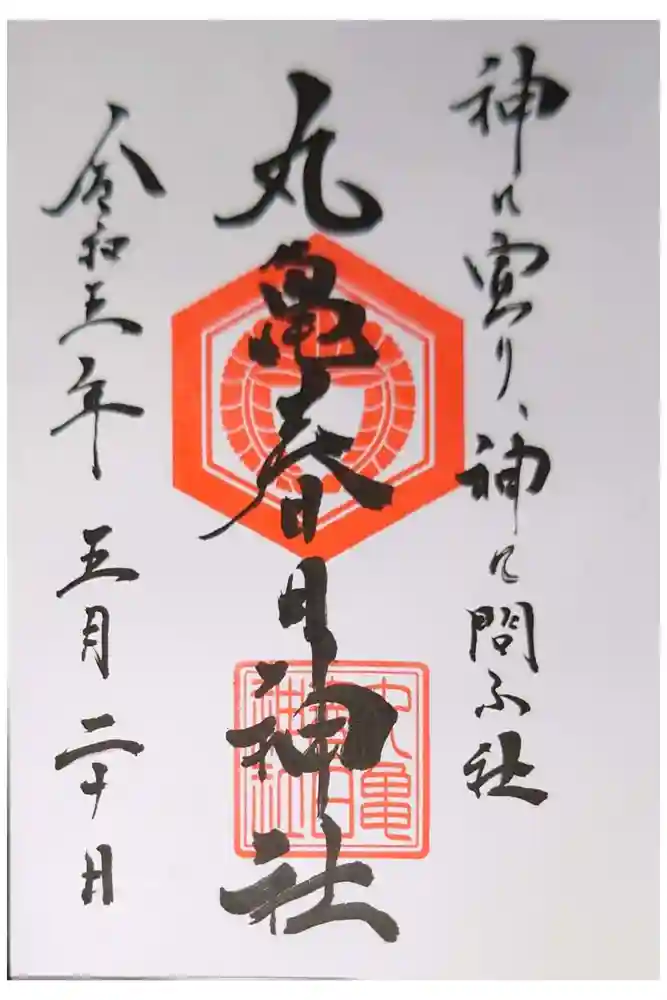 神に宣り、神に問ふ社
丸亀春日神社
令和三年 五月 二十日
丸亀
春日
神社